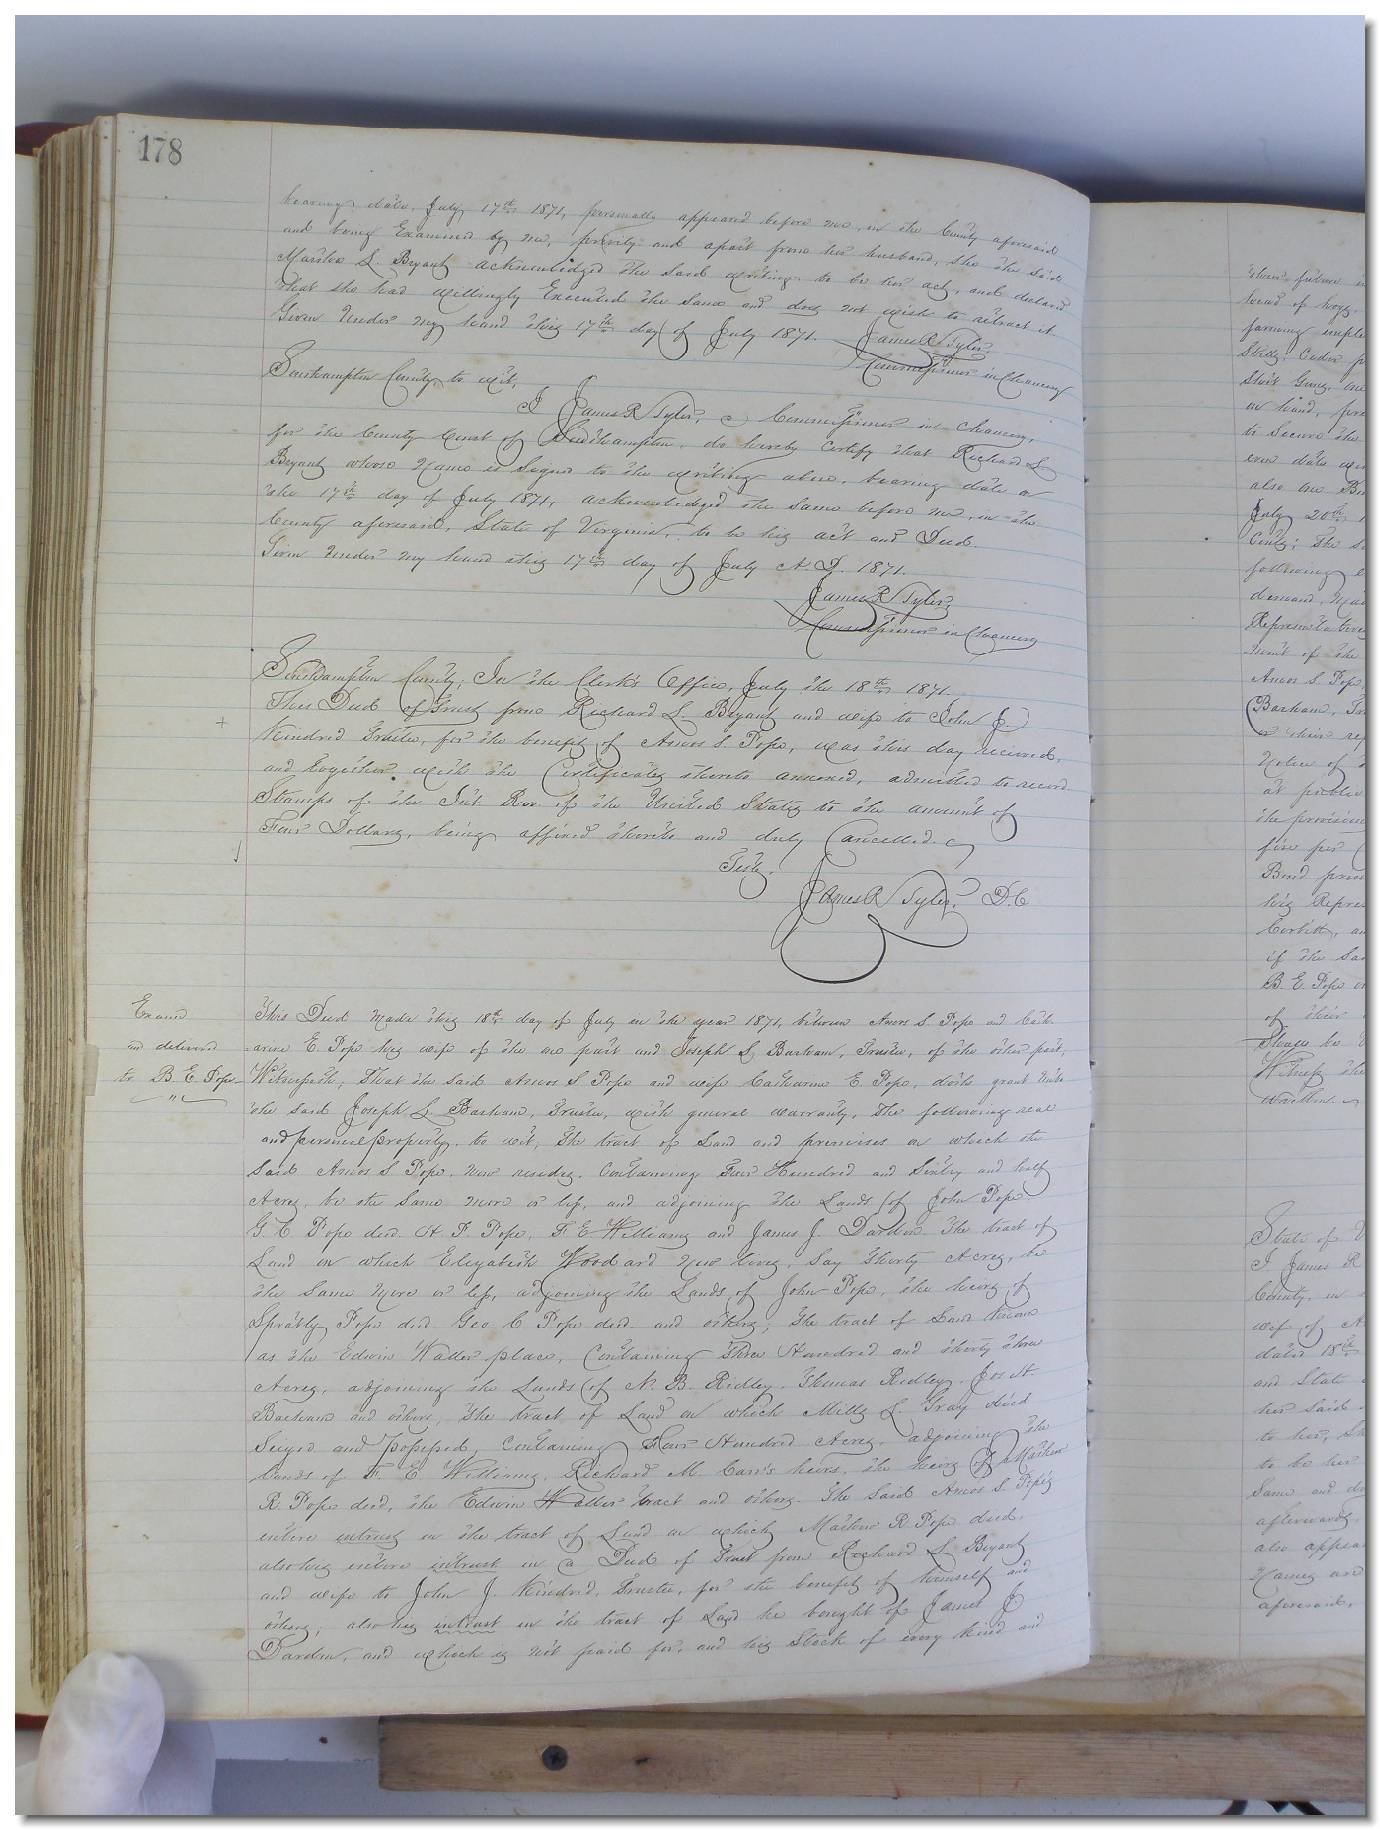 178
bearing date, July 17th 1871, personally appeared before me, in the County aforesaid
and being Examined by me, privily and apart from her husband, she the said
Martha L. Bryant acknowledged the said writing to be her act, and declared
that she had willingly Executed the same and does not wish to retract it
Given Under my hand this 17th day of July 1871. James R Tyler,
Commissioner in Chancery
Southampton County, to wit,
I James R Tyler, a Commissioner in Chancery,
for the County Court of Southampton, do hereby Certify that Richard L
Bryant whose Name is Signed to the writing above, bearing date on
the 17th day of July 1871, acknowledged the same before me, in the
County aforesaid, State of Virginia, to be his act and Deed.
Given Under my hand this 17th day of July A.D. 1871.
James R Tyler,
Commissioner in Chancery
Southampton County; In the Clerk's Office, July the 18th 1871.
This Deed of Trust from Richard L. Bryant and wife to John J.
Kindred Trustee, for the benefit of Amos S. Pope, was this day received,
and together with the Certificates thereto annexed, admitted to record
Stamps of the Int. Rev. of the United States to the amount of
Four Dollars, being affixed thereto and duly Cancelled.
Teste,
James R Tyler, D.C
Examd
and delivered
to B. E. Pope
This Deed Made this 18th day of July in the year 1871, between Amos S Pope and Cath-
arine E. Pope his wife of the one part and Joseph L. Barham, Trustee, of the other part,
Witnesseth; That the said Amos S Pope and wife Catharine E. Pope, doth grant unto
the said Joseph L. Barham, Trustee, with general warranty, the following real
and personal property, to wit, The tract of Land and premises on which the
Said Amos S Pope, now resides, Containing Four Hundred and Sixty and half
Acres, be the Same more or less, and adjoining the Lands of John Pope
G. C Pope decd. H. P. Pope, F. E Williams and James J. Darden. The tract of
Land on which Elizabeth Woodard Now lives, Say Thirty Acres, be
the Same More or less, adjoining the Lands of John Pope, the heirs of
Spratly Pope decd. Geo C Pope decd. and others; The tract of Land known
as the Edwin Waller place, Containing Three Hundred and thirty three
Acres, adjoining the Lands of N. B. Ridley, Thomas Ridley, Jos H.
Barham and others; The tract of Land on which Milly L. Gray died
Seized and possessed, Containing Four Hundred Acres, adjoining the
lands of F. E. Williams, Richard M. Carr's heirs, the heirs of Mathew
R. Pope decd, the Edwin Waller tract and others. The Said Amos S. Pope's
entire intrust in the tract of Land on which Mathew R. Pope died,
also his entire intrust in a Deed of Trust from Richard L. Bryant
and wife to John J. Kindred, Trustee, for the benefit of himself and
others; also his intrust in the tract of Land he bought of James J
Darden, and which is not paid for, and his Stock of every kind and
head of hogs,
farming imple
on hand, 
to Secure the
even date 
also one 
July 20th 1
following
demand, 
Representative
ment of the
Amos S. Pope,
Barham, Tr
or their rep
Notice of
at public
the provision
five per
Bond 
his Repres
Corbitt, a
if the Sa
B. E. Pope or
of their
Shall be
Witness the
written
State of V
I James R
County, in
wife of A
dated 18th
and State
her said
to her, Sh
to be her
Same and d
afterwards
also appea
Names are
aforesaid,